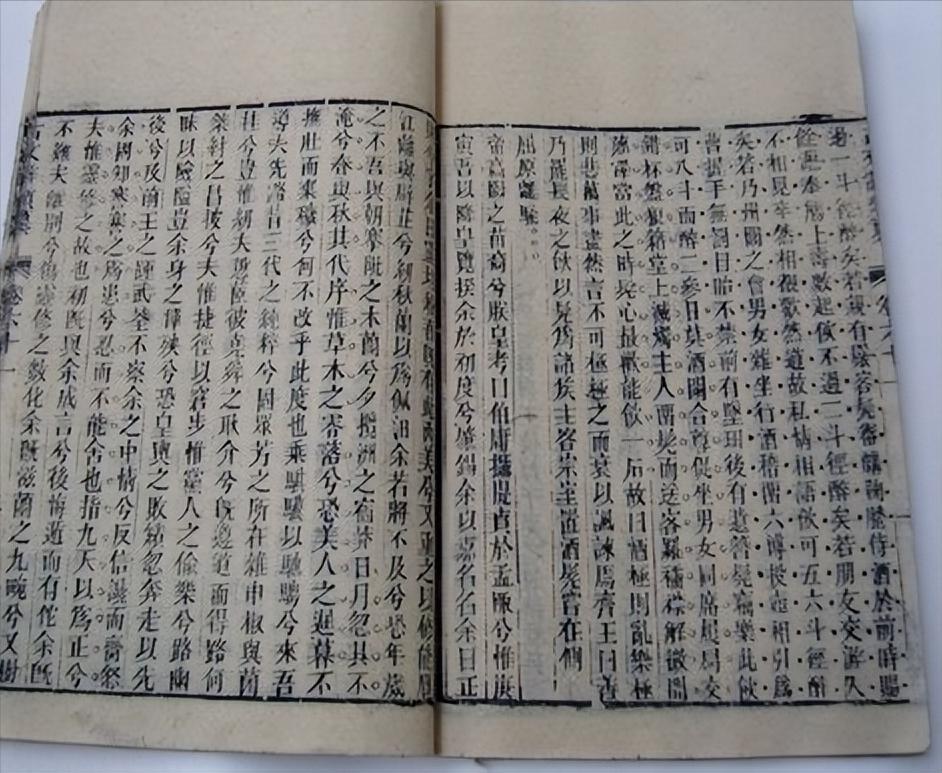 卷六十
一斗徑醉矣若親有嚴客髡帣韝鞠䠆侍酒於前時賜
餘瀝奉觴上壽數起飲不過二斗徑醉矣若朋友交游久
不相見卒然相覩歡然道故私情相語飲可五六斗徑醉
矣若乃州閭之會男女雜坐行酒稽留六博投壺相引爲
曹握手無罰目眙不禁前有墮珥後有遺簪髡竊樂此飲
可八斗而醉二參日莫酒闌合尊促坐男女同席履舄交
錯杯盤狼籍堂上滅燭主人留髡而送客羅襦襟解微聞
薌澤當此之時髡心最歡能飲一石故曰酒極則亂樂極
則悲萬事盡然言不可極極之而衰以諷諫焉齊王曰善
乃罷長夜之飲以髡爲諸侯主客宗室置酒髡嘗在側
屈原離騷
帝高陽之苗裔兮朕皇考曰伯庸攝提貞於孟陬兮惟庚
寅吾以降皇覽揆余於初度兮肇錫余以嘉名名余曰正
則兮字余曰靈均紛吾既有此內美兮又重之以修能扈
江蘺與辟芷兮紉秋蘭以爲佩汩余若將不及兮恐年歲
之不吾與朝搴阰之木蘭兮夕攬洲之宿莽日月忽其不
淹兮春與秋其代序惟草木之零落兮恐美人之遲暮不
撫壯而棄穢兮何不改乎此度也乘騏驥以馳騁兮來吾
導夫先路昔三代之純粹兮固眾芳之所在雜申椒與菌
桂兮豈惟紉夫蕙茝彼堯舜之耿介兮既遵道而得路何
桀紂之昌披兮夫惟捷徑以窘步惟黨人之偷樂兮路幽
昧以險隘豈余身之憚殃兮恐皇輿之敗績忽奔走以先
後兮及前王之踵武荃不察余之中情兮反信讒而齌怒
余固知謇謇之爲患兮忍而不能舍也指九天以爲正兮
夫惟靈修之故也初既與余成言兮後悔遁而有佗余既
不難夫離別兮傷靈修之數化余既滋蘭之九畹兮又樹
古文辭類纂 卷六十一